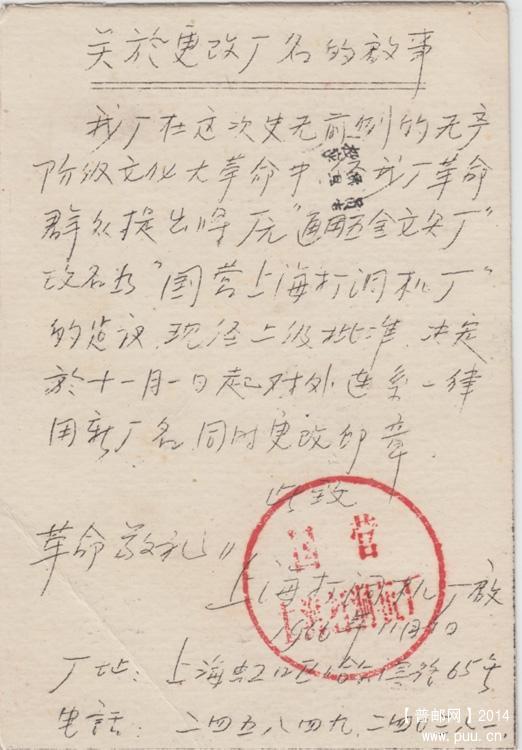 关於更改厂名的啟事
我厂在这次史无前例的无产
阶级文化大革命中 我厂革命
群众提出将原"通用五金文具厂"
改名为"国营上海打洞机厂"
的倡议.现经上级批准.决定
於十一月一日起对外连系一律
用新厂名.同时更改印章.
此致
革命敬礼!!
国营
上海打洞机厂
上海打洞机厂啟
1966年11月 日
厂址: 上海虹口区 路65号
电話: 二四五八四九.二四
【普邮网】2014
www.puu.cn